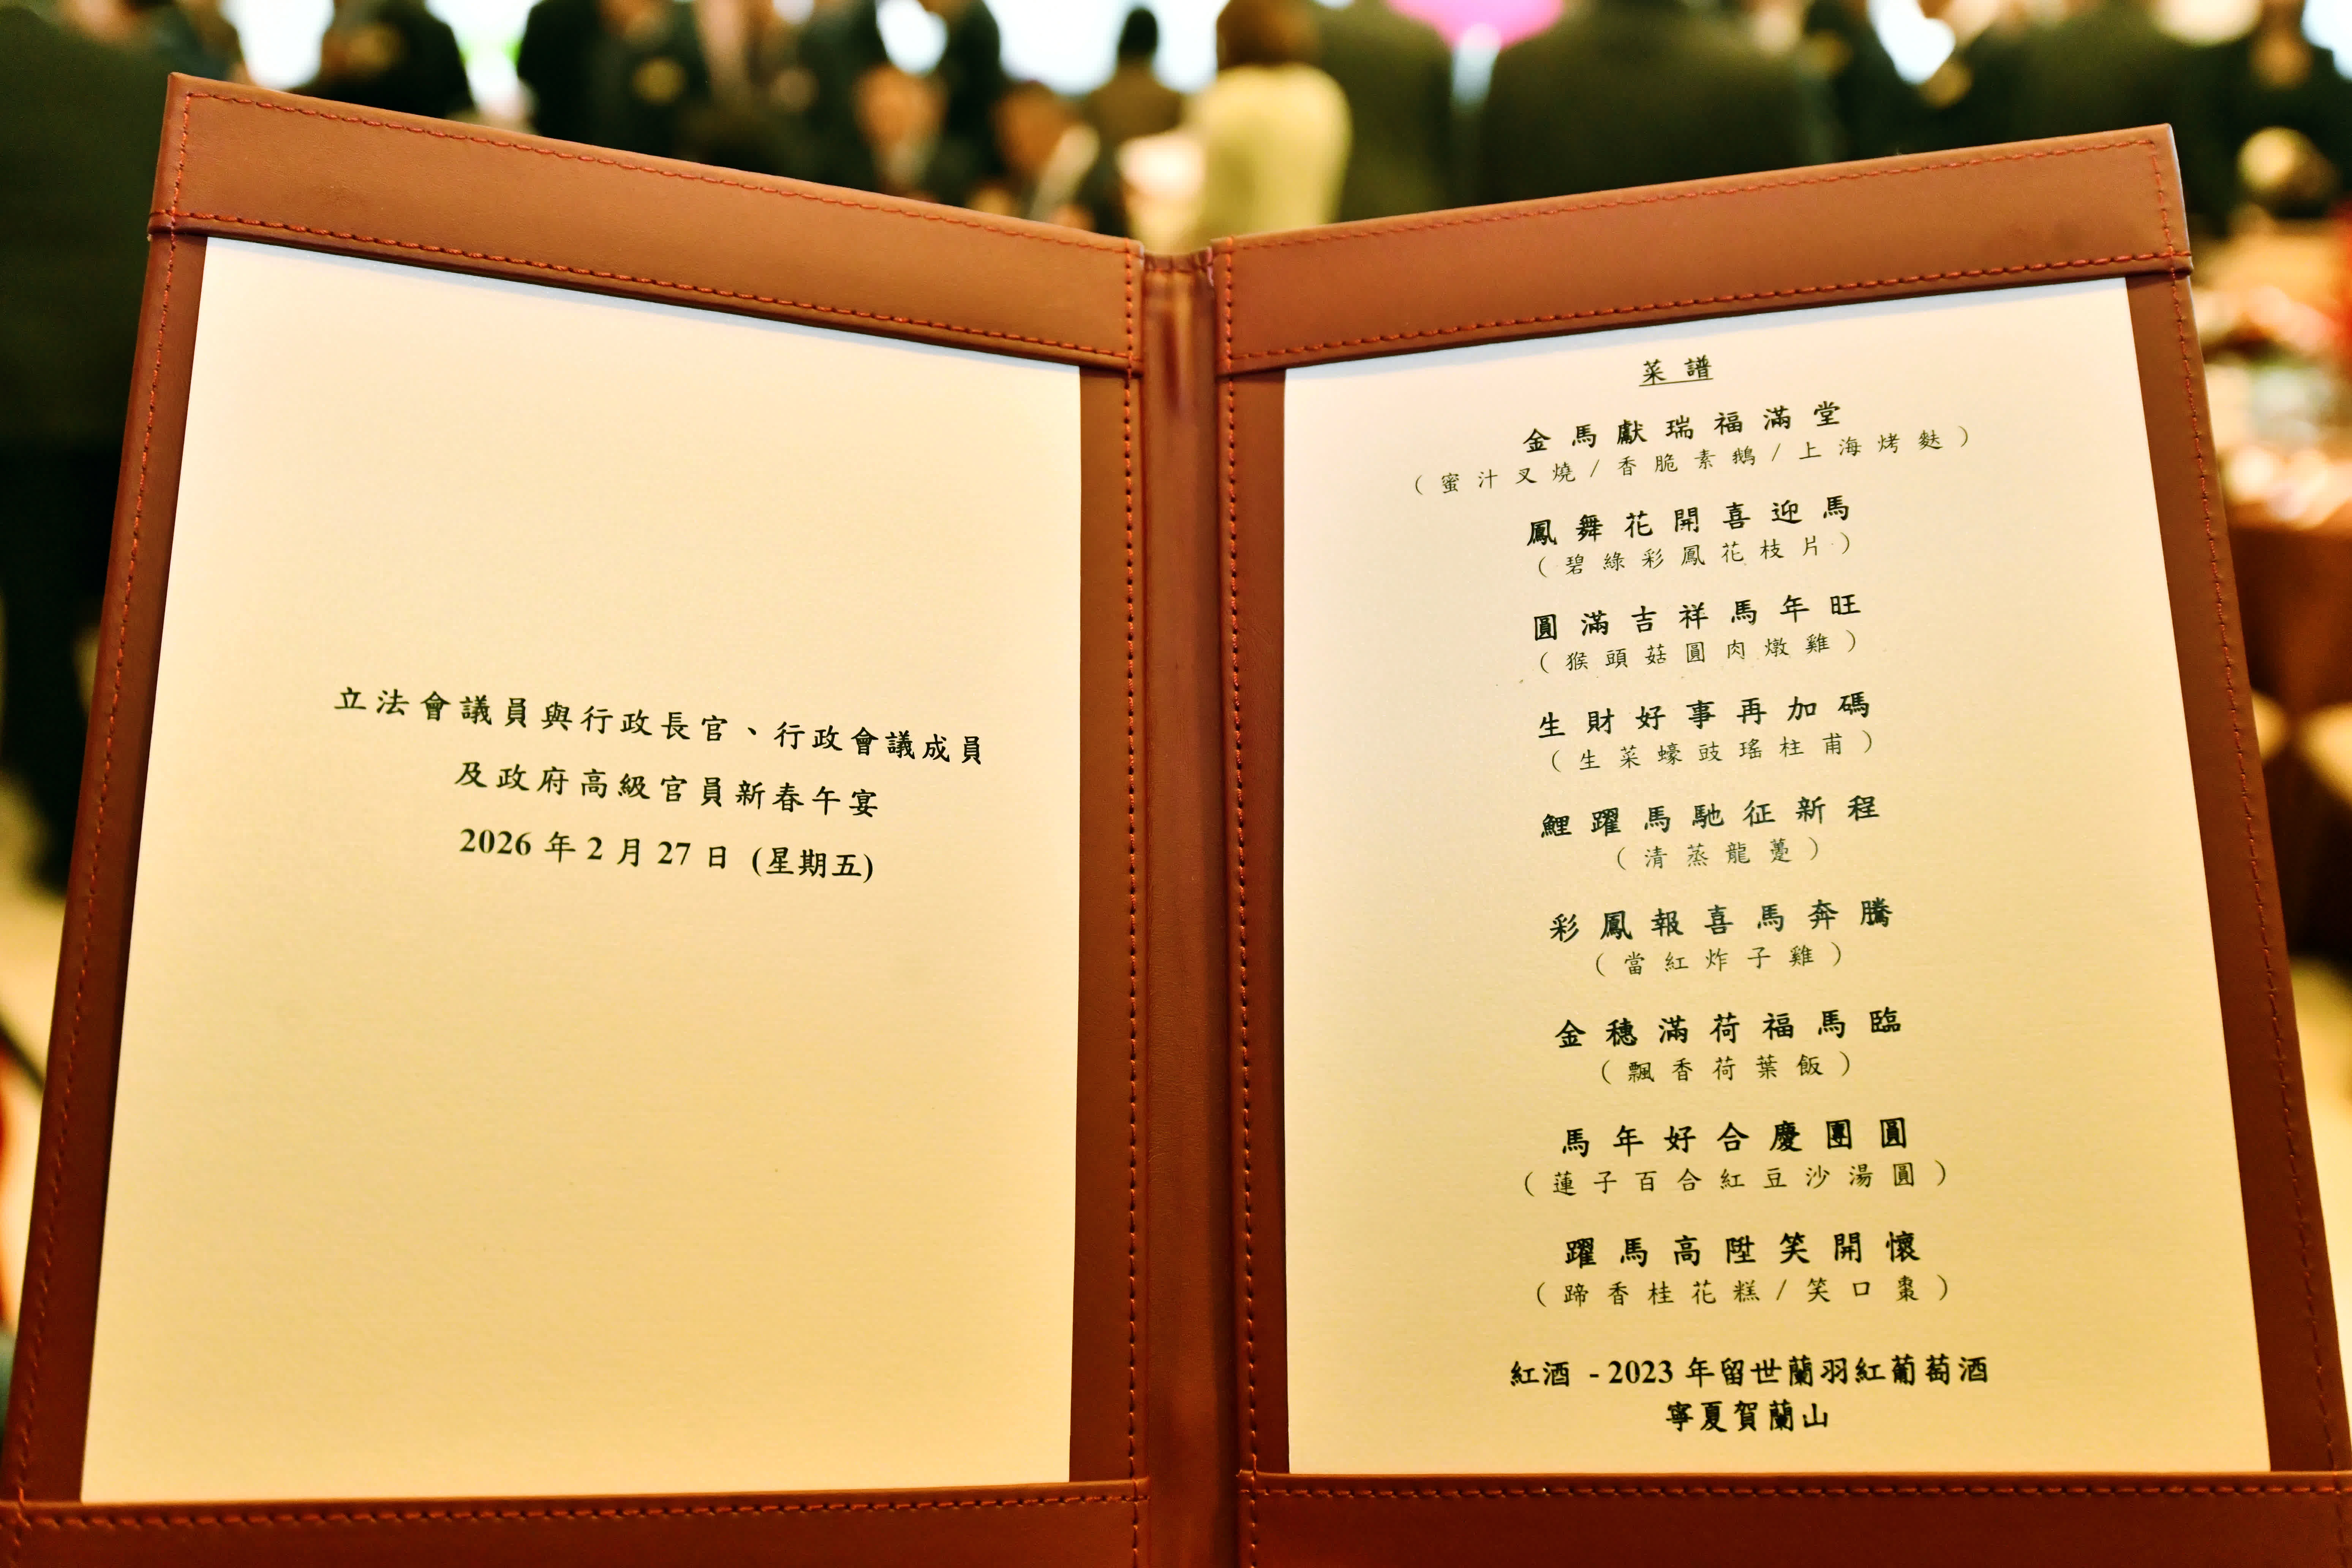 立法會議員與行政長官、行政會議成員
及政府高級官員新春午宴
2026 年 2 月 27 日 (星期五)
菜 譜
金馬獻瑞福滿堂
(蜜汁叉燒/香脆素鵝/上海烤麩)
鳳舞花開喜迎馬
(碧綠彩鳳花枝片)
圓滿吉祥馬年旺
(猴頭菇圓肉燉雞)
生財好事再加碼
(生菜蠔豉瑤柱甫)
鯉躍馬馳征新程
(清蒸龍躉)
彩鳳報喜馬奔騰
(當紅炸子雞)
金穗滿荷福馬臨
(飄香荷葉飯)
馬年好合慶團圓
(蓮子百合紅豆沙湯圓)
躍馬高陞笑開懷
(蹄香桂花糕/笑口棗)
紅酒 - 2023 年留世蘭羽紅葡萄酒
寧夏賀蘭山